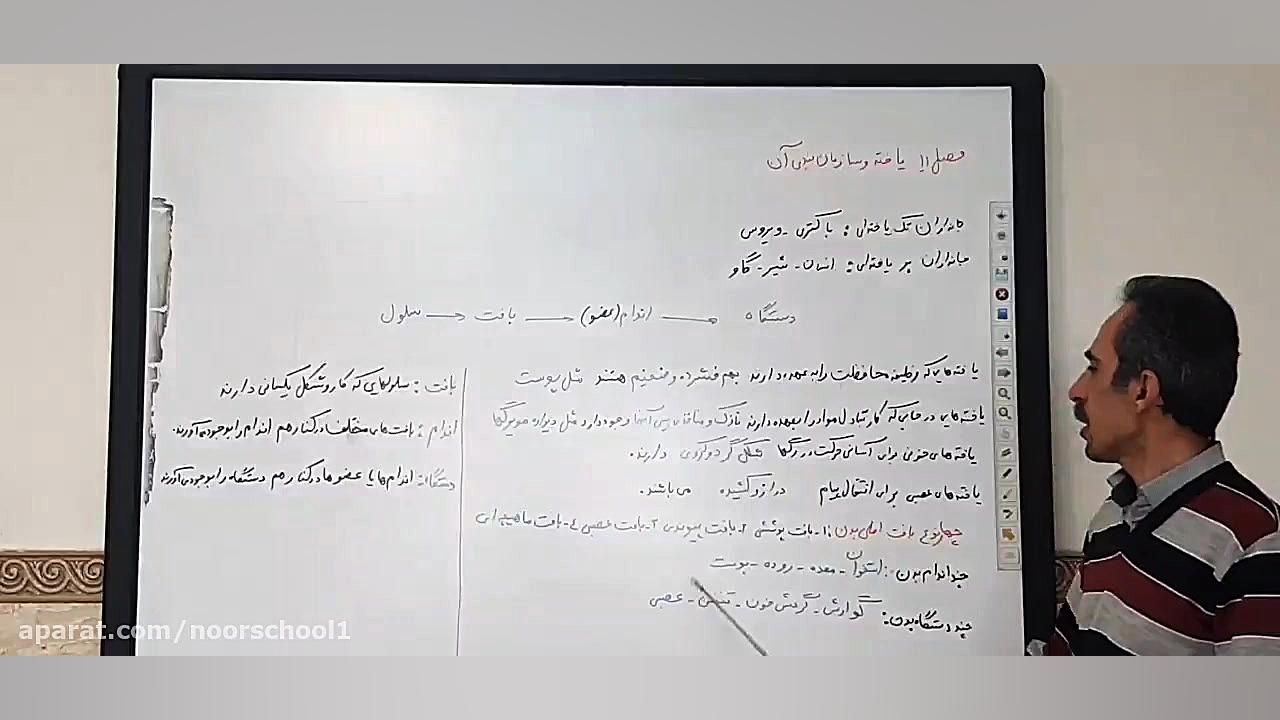 فصل ۱۱ یاخته و سازمان بندی آن
جانداران تک یاخته‌ای : باکتری - ویروس
جانداران پر یاخته‌ای : انسان - شیر - گاو
دستگاه ← اندام (عضو) ← بافت ← سلول
یاخته‌هایی که وظیفه محافظت را به عهده دارند بهم فشرده و ضخیم هستند مثل پوست
یاخته‌های در جایی که کار تبادل مواد را بعهده دارند نازک و منافذی بین آنها وجود دارد مثل دیواره مویرگها
یاخته‌های خونی برای آسانی حرکت در رگها شکل گرد و کروی دارند.
یاخته‌های عصبی برای انتقال پیام دراز و کشیده می‌باشند.
چهار نوع بافت اصلی بدن : ۱- بافت پوششی ۲- بافت پیوندی ۳- بافت عصبی ۴- بافت ماهیچه‌ای
چند اندام بدن : استخوان - معده - روده - پوست
چند دستگاه بدن : گوارش - گردش خون - تنفس - عصبی
بافت : سلولهایی که کار و شکل یکسانی دارند
اندام : بافت‌های مختلف در کنار هم اندام را بوجود می‌آورند.
دستگاه : اندام‌ها یا عضوها در کنار هم دستگاه را بوجود می‌آورند
aparat.com/noorschool1